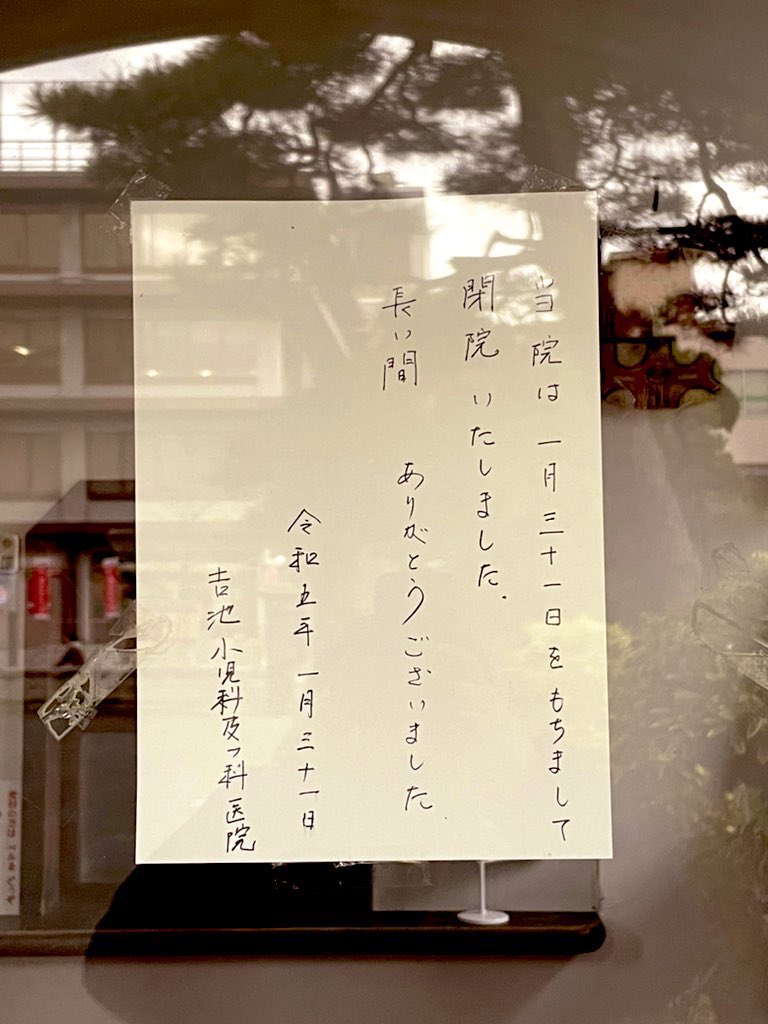 当院は一月三十一日をもちまして
閉院いたしました.
長い間 ありがとうございました.
令和五年一月三十一日
吉池小児科及フ科医院